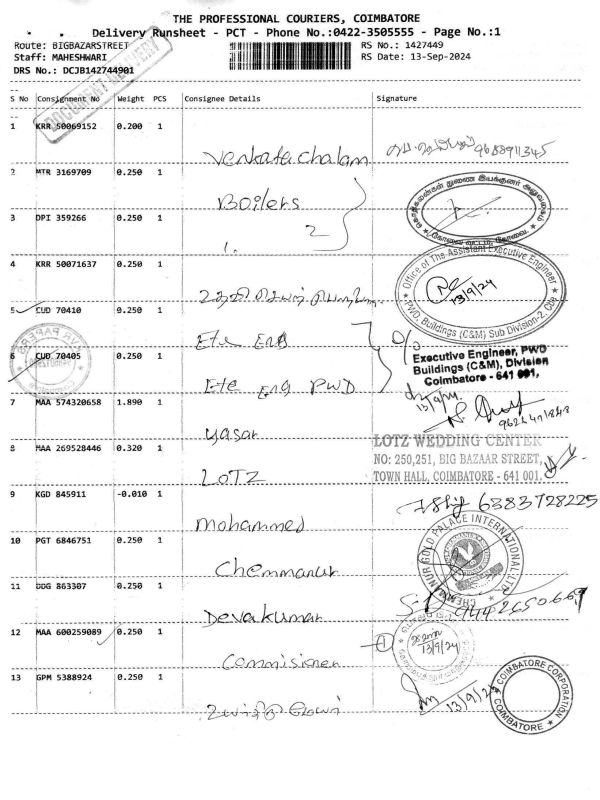 THE PROFESSIONAL COURIERS, COIMBATORE
Delivery Runsheet - PCT - Phone No.:0422-3505555 - Page No.:1
Route: BIGBAZARSTREET
RS No.: 1427449
Staff: MAHESHWARI
RS Date: 13-Sep-2024
DRS No.: DCJB142744901
DOCUMENT DELIVERY
S No Consignment No Weight PCS Consignee Details Signature
1 KRR 50069152 0.200 1
Venkatachalam 9688911345
2 MTR 3169709 0.250 1
Boilers
3 DPI 359266 0.250 1
1. 2
4 KRR 50071637 0.250 1
Office of The Assistant Executive Engineer
PWD, Buildings (C&M) Sub Division-2, Cbe
13/9/24
உதவி செயற் பொறியாளர்
5 CUD 70410 0.250 1
Ete Eng
6 CUD 70405 0.250 1
Executive Engineer, PWD
Buildings (C&M), Division
Coimbatore - 641 001,
Ete Eng PWD
7 MAA 574320658 1.890 1
Yasar
8 MAA 269528446 0.320 1
LOTZ WEDDING CENTER
NO: 250,251, BIG BAZAAR STREET,
TOWN HALL, COIMBATORE - 641 001.
LOTZ
9 KGD 845911 -0.010 1
6383728225
Mohammed
10 PGT 6846751 0.250 1
CHEMMANUR GOLD PALACE INTERNATIONAL LTD
Chemmanur
11 DDG 863307 0.250 1
Devakumar
12 MAA 600259089 0.250 1
13/9/24
Commisioner
13 GPM 5388924 0.250 1
13/9/24
COIMBATORE CORPORATION
COIMBATORE